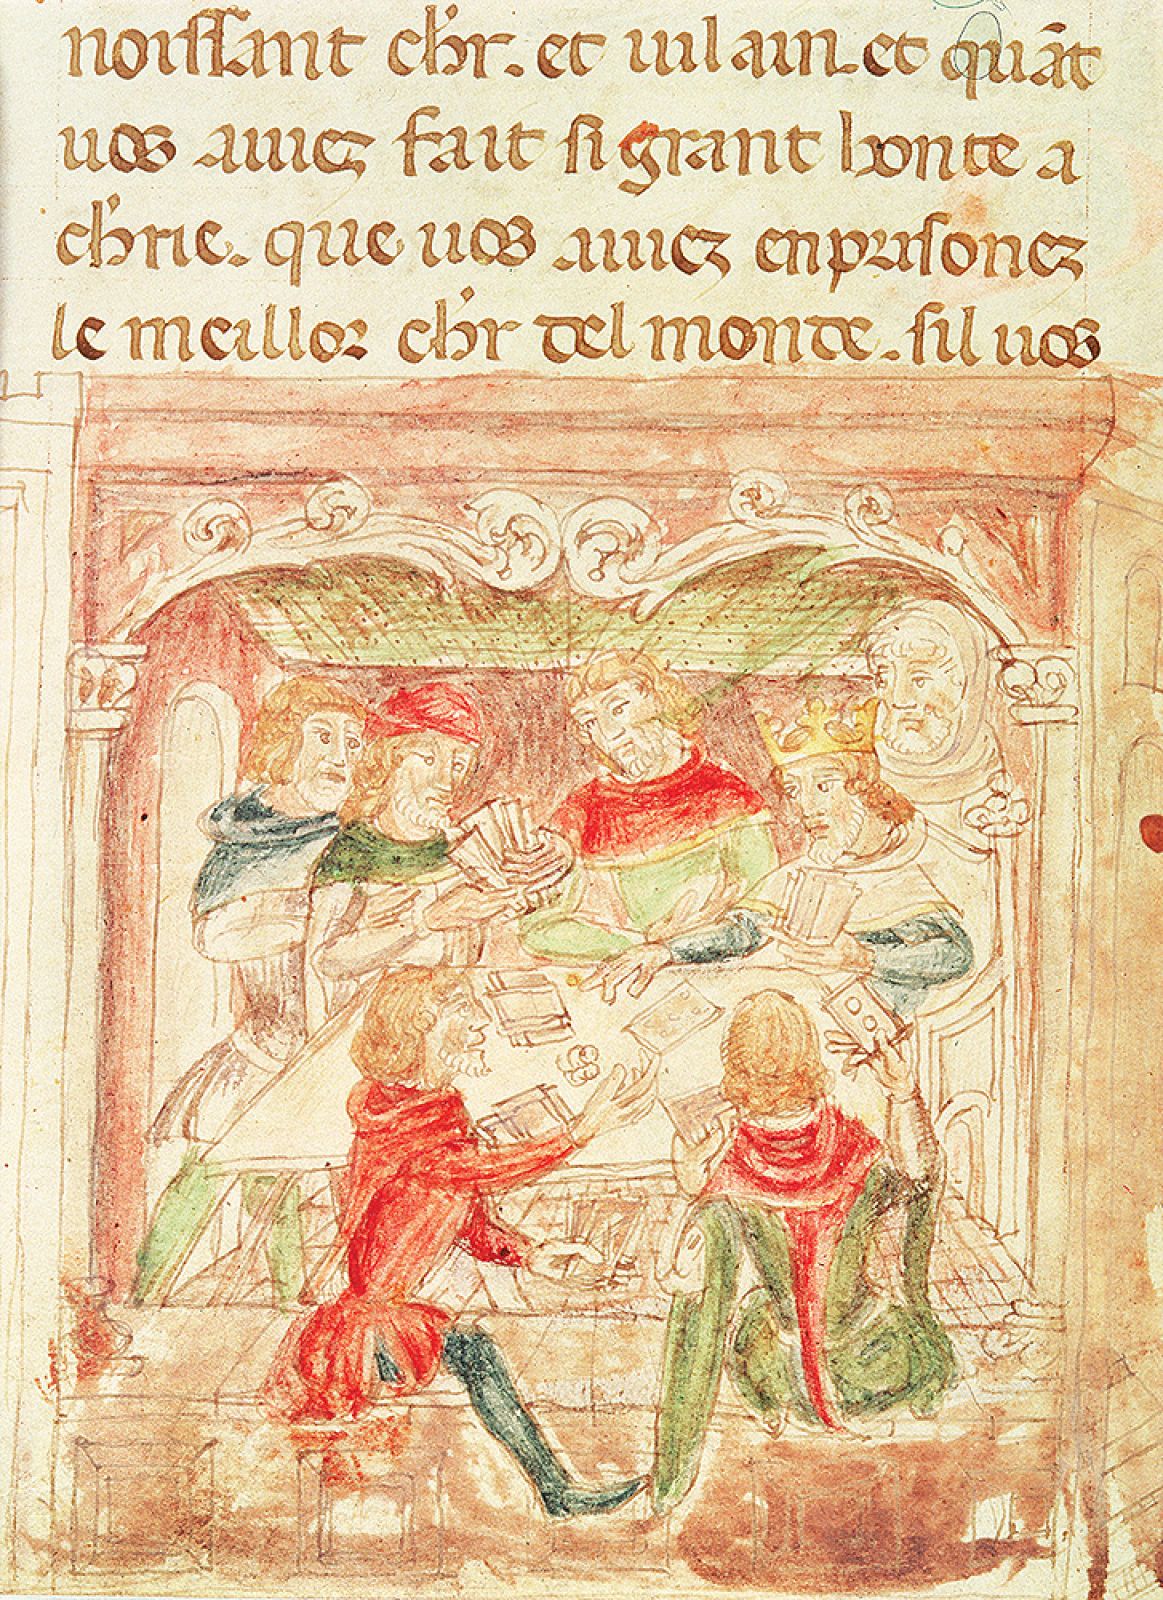 noissant ch'r. et uilain. et quāt
uos auiez fait si grant honte a
ch'rie. que uos auiez enprisonez
le meillor ch'r del monde. sil uos